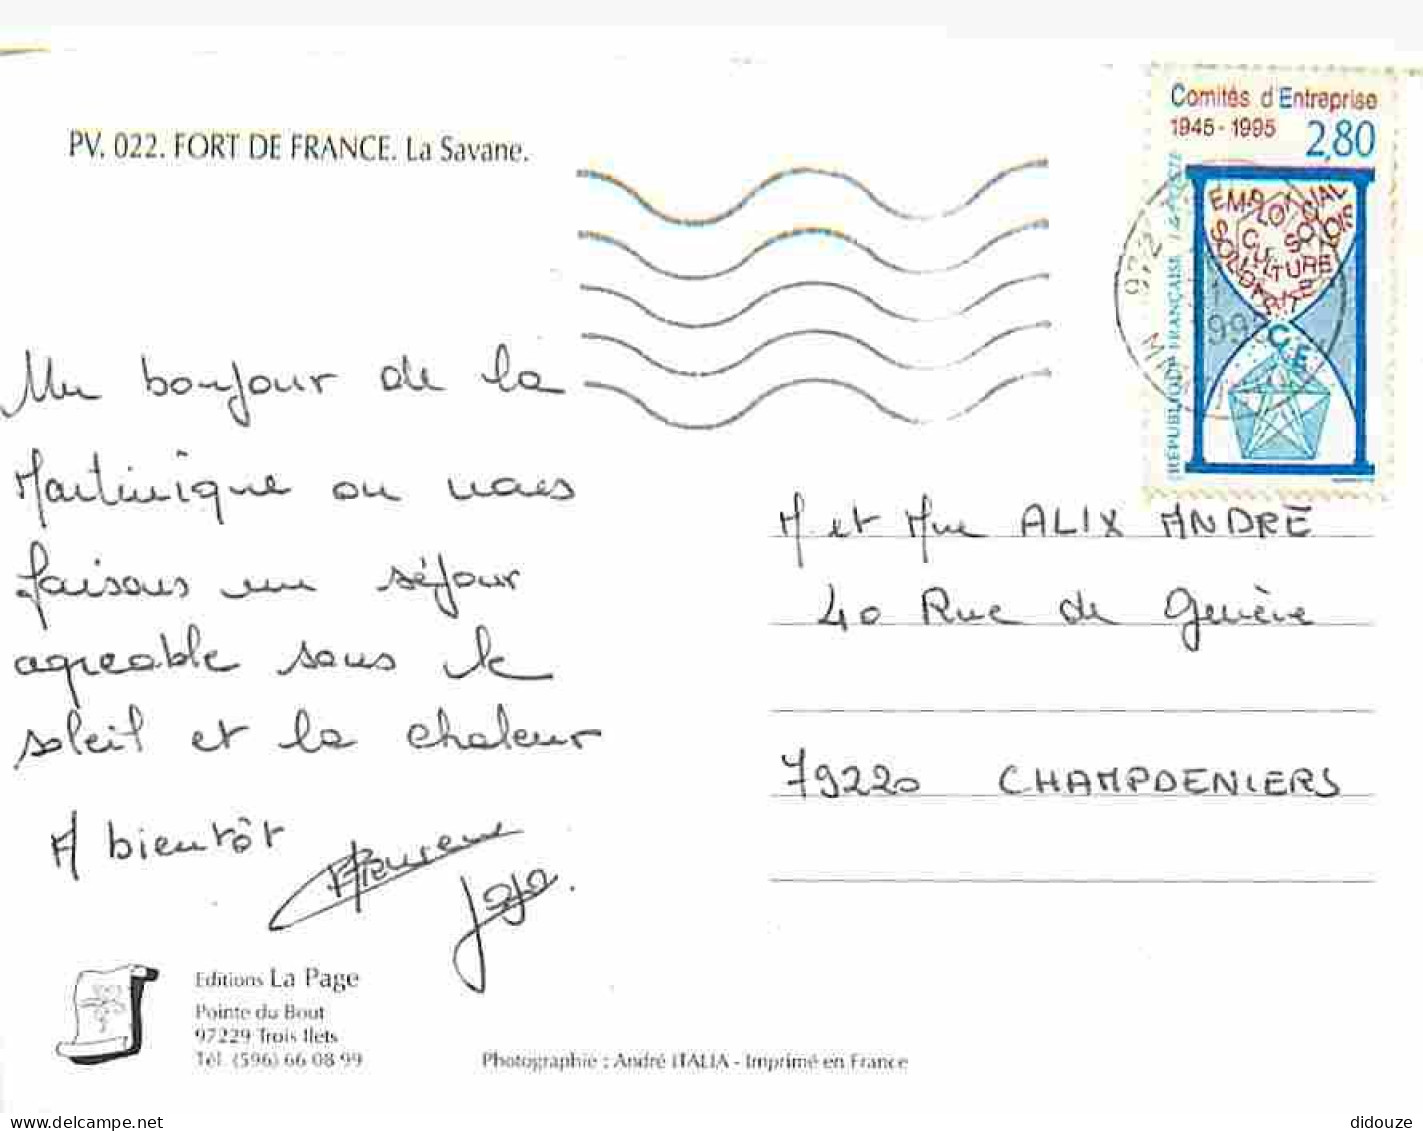 PV. 022. FORT DE FRANCE. La Savane.
Comités d'Entreprise
1945-1995 2,80
EMPLOI SOCIAL
CULTURE LOISIRS
SOLIDARITÉ
C.E.
RÉPUBLIQUE FRANÇAISE LA POSTE
972
Un bonjour de la
Martinique ou nous
faisons un séjour
agreable sous le
soleil et la chaleur
A bientôt
M et Mme ALIX ANDRÉ
40 Rue de Genève
79220 CHAMPDENIERS
Editions La Page
Pointe du Bout
97229 Trois Ilets
Tél. (596) 66 08 99
Photographie : André ITALIA - Imprimé en France
delcampe.net
didouze